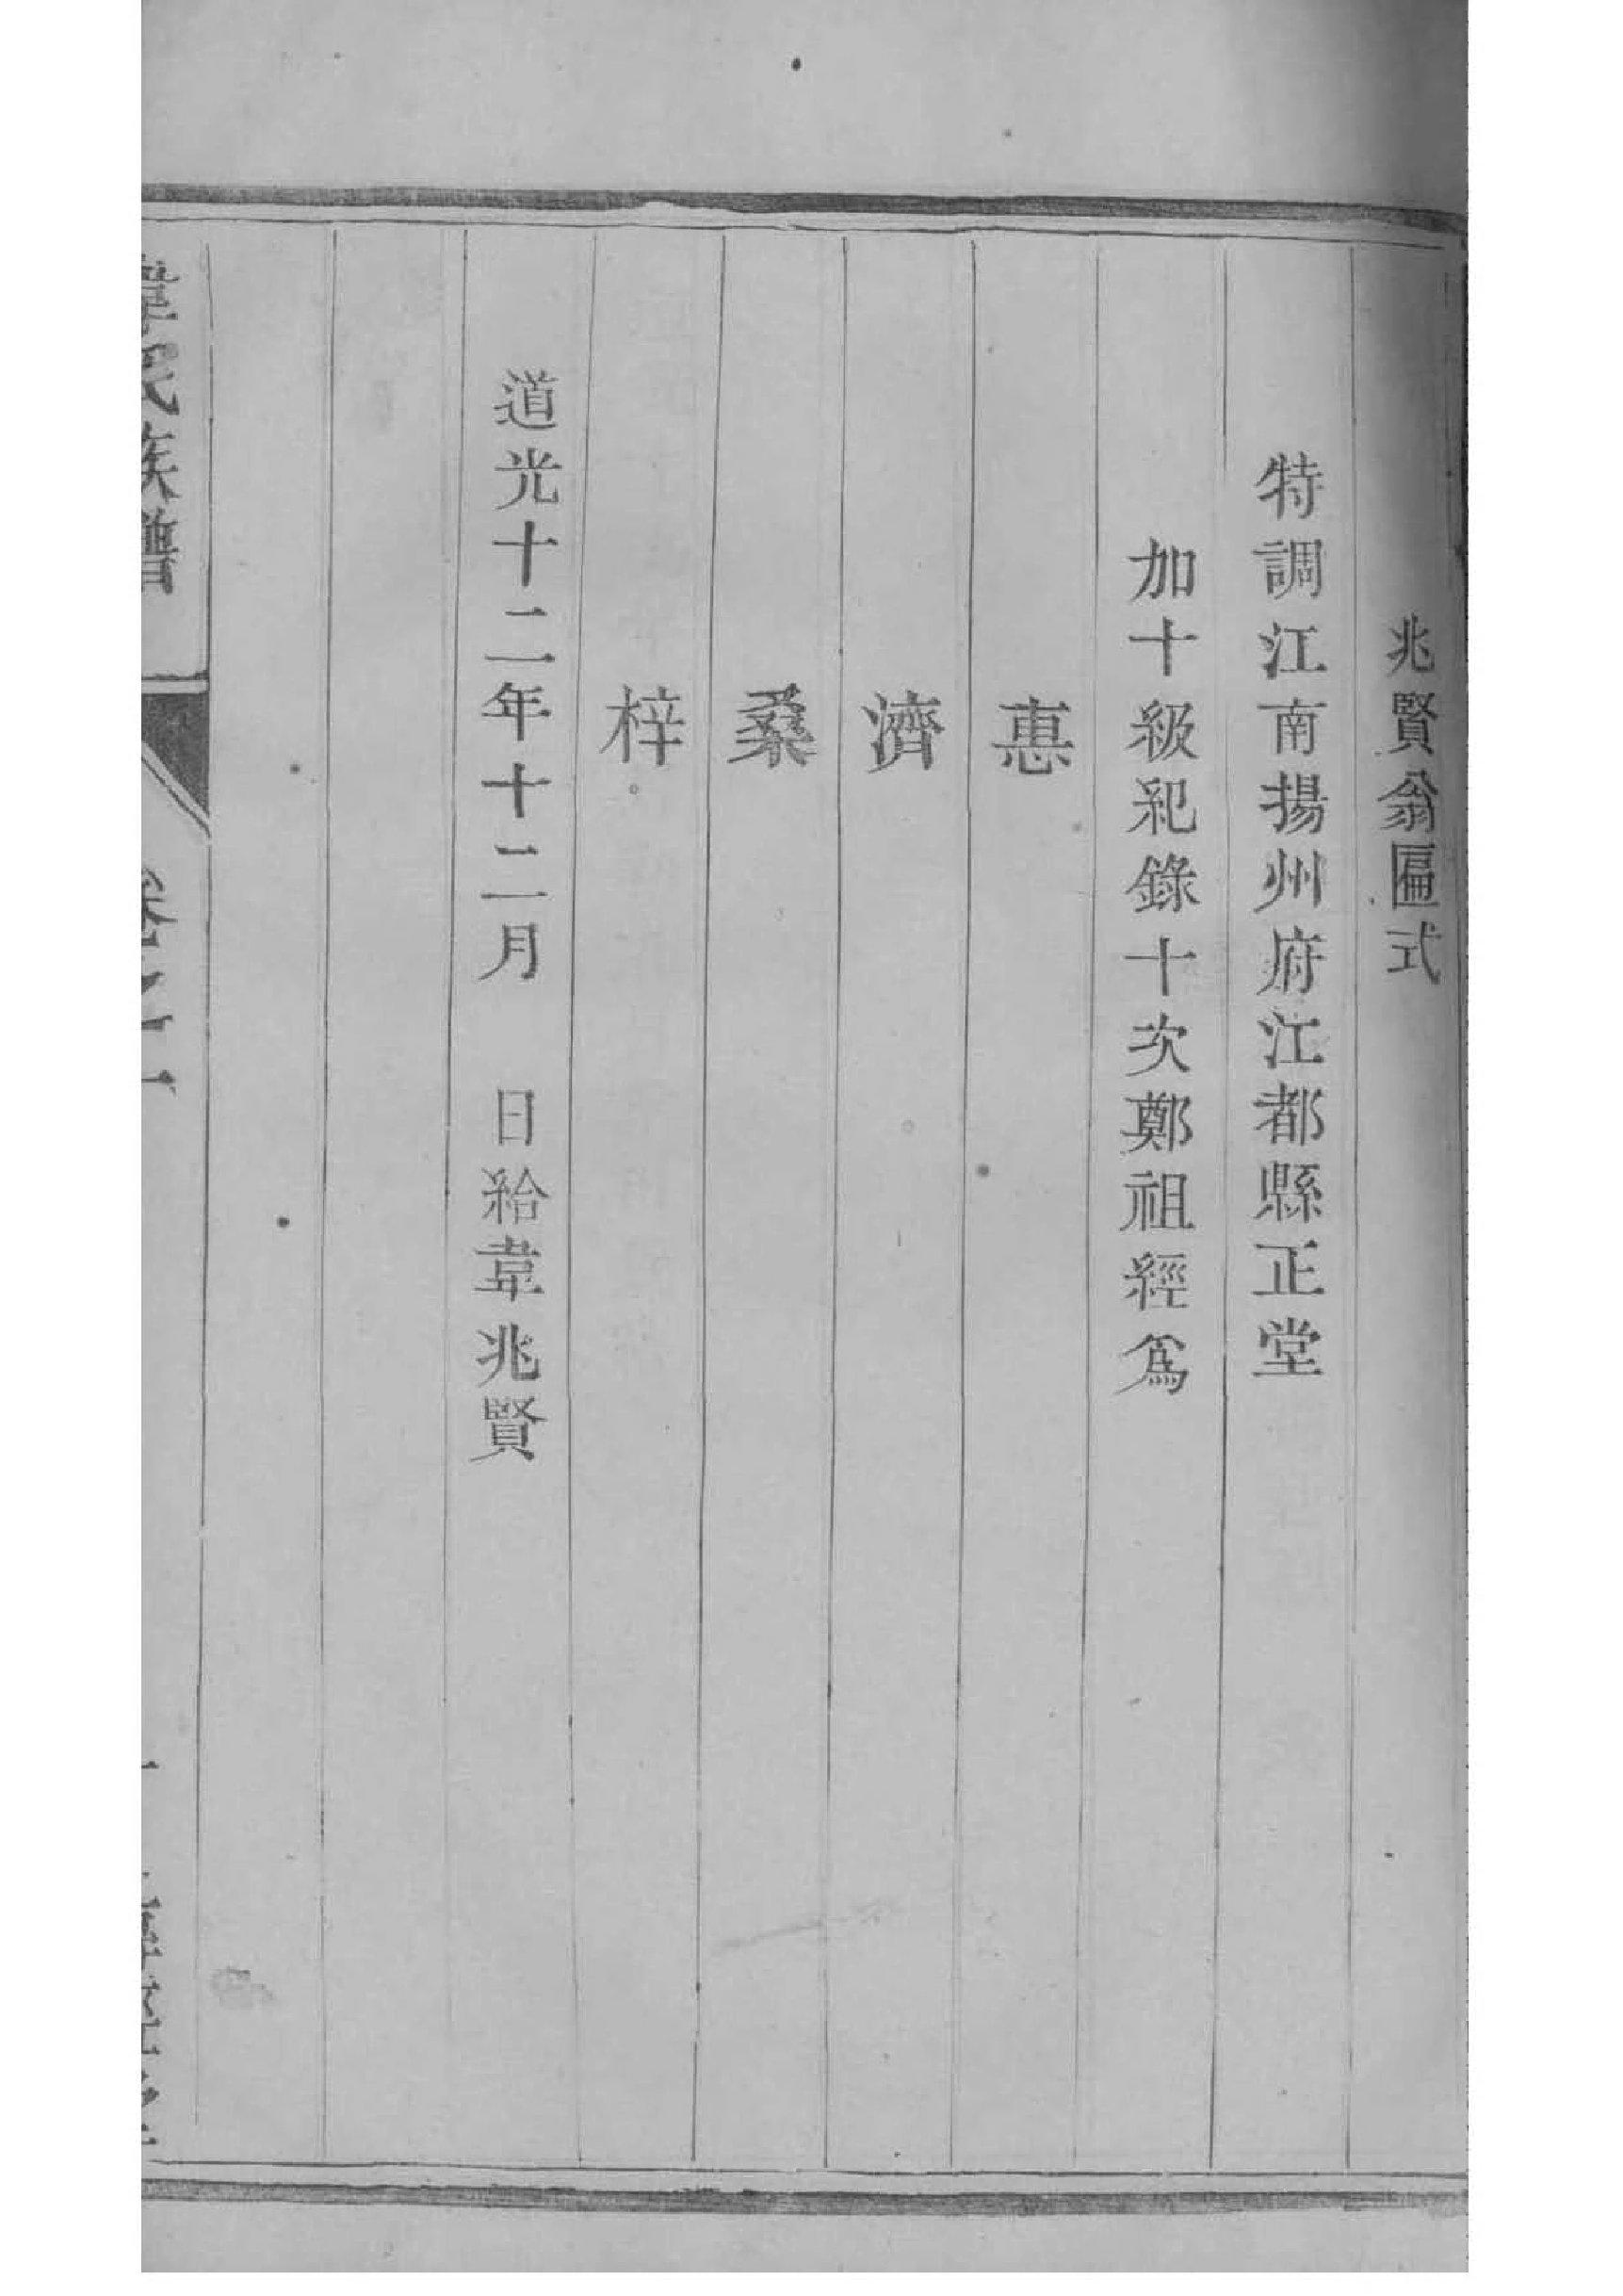 兆賢翁匾式
特調江南揚州府江都縣正堂
加十級紀錄十次鄭祖經爲
惠
濟
桑
梓
道光十二年十二月　日給韋兆賢
韋氏族譜
卷之二
一